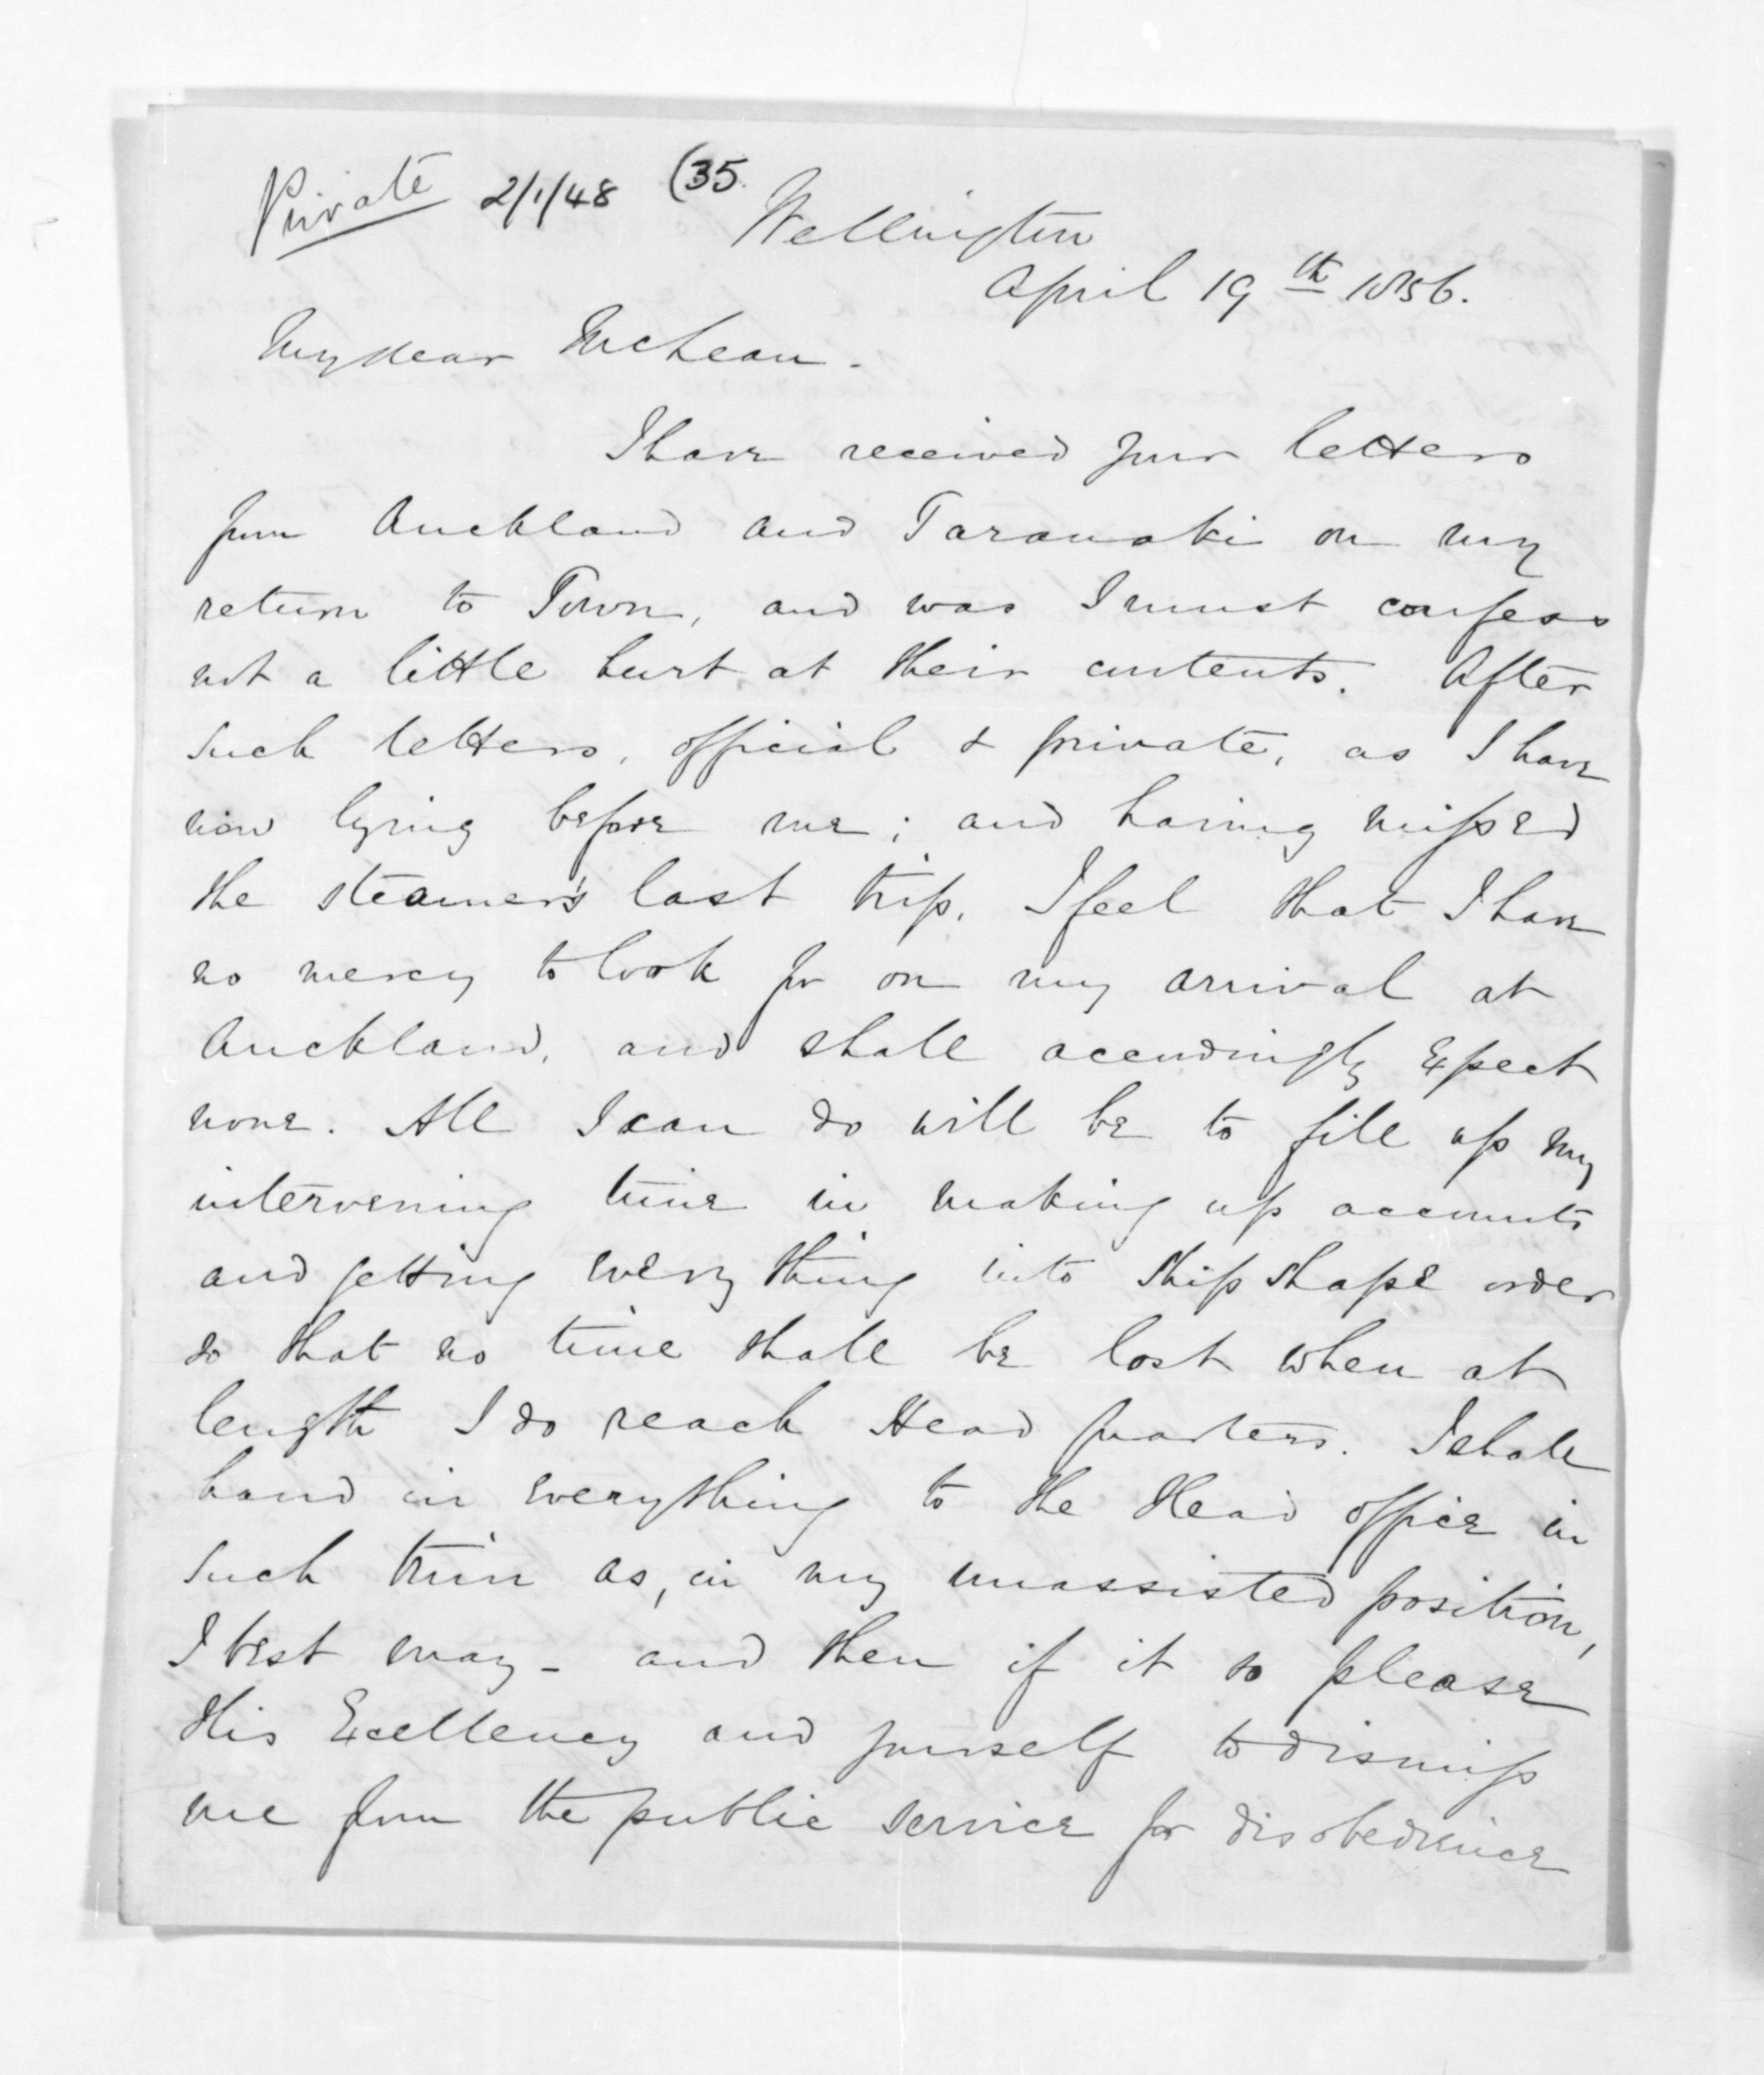 Private 2/1/48 (35.
Wellington
April 19th 1856.
My dear McLean.
I have received your letters
from Auckland and Taranaki on my
return to Town, and was I must confess
not a little hurt at their contents. After
such letters, official & private, as I have
now lying before me; and having missed
the steamer's last trip, I feel that I have
no mercy to look for on my arrival at
Auckland, and shall accordingly expect
none. All I can do will be to fill up my
intervening time in making up accounts
and getting every thing into ship shape order
so that no time shall be lost when at
length I do reach Head quarters. I shall
hand in everything to the Head office in
such trim as, in my unassisted position,
I best may - and then if it so please
His Excellency and yourself to dismiss
me from the public service for disobedience